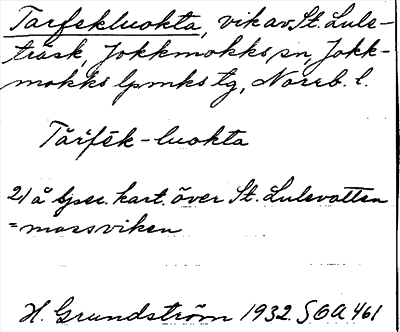 Tarfekluokta, vik av St. Lule-
träsk, Jokkmokks sn, Jokk-
mokks lpmks tg, Norrb. l.
Tārfēk-luokta
2) å spec. kart. över St. Lulevatten
=mossviken
H. Grundström 1932. SOA 461